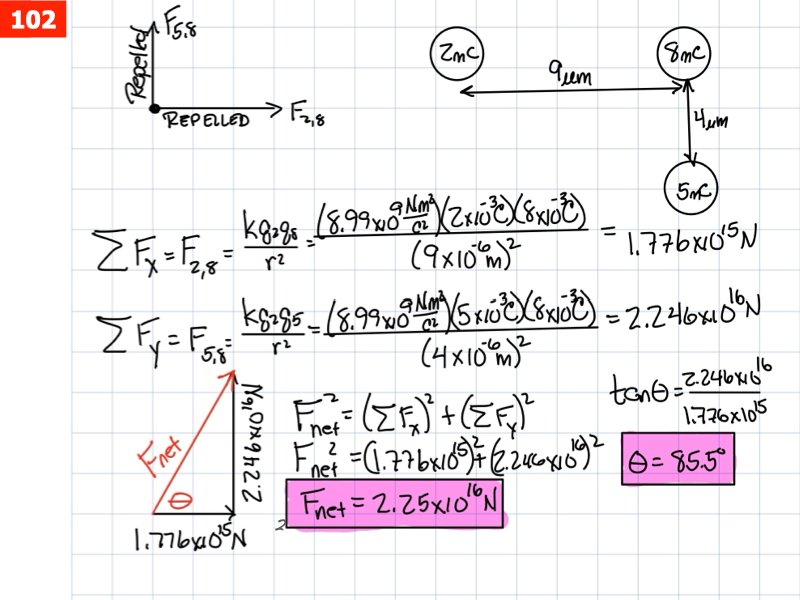 102
F5,8
Repelled
REPELLED
F2,8
2mC
8mC
9μm
4μm
5mC
∑Fx = F2,8 = kq2q8/r² = (8.99x10⁹ Nm²/C²)(2x10⁻³C)(8x10⁻³C)/(9x10⁻⁶m)² = 1.776x10¹⁵N
∑Fy = F5,8 = kq2q5/r² = (8.99x10⁹ Nm²/C²)(5x10⁻³C)(8x10⁻³C)/(4x10⁻⁶m)² = 2.246x10¹⁶N
Fnet
θ
2.246x10¹⁶N
1.776x10¹⁵N
Fnet² = (∑Fx)² + (∑Fy)²
Fnet² = (1.776x10¹⁵)² + (2.246x10¹⁶)²
2
Fnet = 2.25x10¹⁶N
tanθ = 2.246x10¹⁶/1.776x10¹⁵
θ = 85.5°